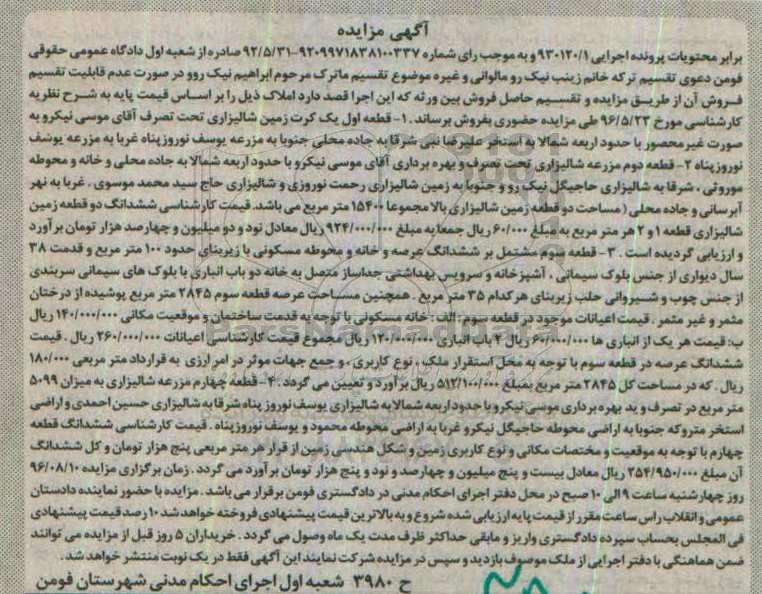 آگهی مزایده
برابر محتویات پرونده اجرایی ۹۳۰۱۲۰/۱ و به موجب رای شماره ۹۲۰۹۹۷۱۸۳۸۱۰۰۳۳۷-۹۲/۵/۳۱ صادره از شعبه اول دادگاه عمومی حقوقی
فومن دعوی تقسیم ترکه خانم زینب نیک رو مالوانی و غیره موضوع تقسیم ماترک مرحوم ابراهیم نیک روو در صورت عدم قابلیت تقسیم
فروش آن از طریق مزایده و تقسیم حاصل فروش بین ورثه که این اجرا قصد دارد املاک ذیل را بر اساس قیمت پایه به شرح نظریه
کارشناسی مورخ ۹۶/۵/۲۳ طی مزایده حضوری بفروش برساند .۱- قطعه اول یک کرت زمین شالیزاری تحت تصرف آقای موسی نیکرو به
صورت غیر محصور با حدود اربعه شمالا به استخر علیرضا نبی شرقا به جاده محلی جنوبا به مزرعه یوسف نوروز پناه غربا به مزرعه یوسف
نوروز پناه ۲- قطعه دوم مزرعه شالیزاری تحت تصرف و بهره برداری آقای موسی نیکرو با حدود اربعه شمالا به جاده محلی و خانه و محوطه
موروثی ، شرقا به شالیزاری حاجیگل نیک رو و جنوبا به زمین شالیزاری رحمت نوروزی و شالیزاری حاج سید محمد موسوی . غربا به نهر
آبرسانی و جاده محلی ( مساحت دو قطعه زمین شالیزاری بالا مجموعا ۱۵۴۰۰ متر مربع می باشد. قیمت کارشناسی ششدانگ دو قطعه زمین
شالیزاری قطعه ۱ و ۲ هر متر مربع به مبلغ ۶۰/۰۰۰ ریال جمعا به مبلغ ۹۲۴/۰۰۰/۰۰۰ ریال معادل نود و دو میلیون و چهارصد هزار تومان برآورد
و ارزیابی گردیده است . ۳- قطعه سوم مشتمل بر ششدانگ عرصه و خانه و محوطه مسکونی با زیربنای حدود ۱۰۰ متر مربع و قدمت ۳۸
سال دیواری از جنس بلوک سیمانی ، آشپزخانه و سرویس بهداشتی جداساز متصل به خانه دو باب انباری با بلوک های سیمانی سربندی
از جنس چوب و شیروانی حلب زیربنای هر کدام ۳۵ متر مربع . همچنین مساحت عرصه قطعه سوم ۲۸۴۵ متر مربع پوشیده از درختان
مثمر و غیر مثمر . قیمت اعیانات موجود در قطعه سوم : الف : خانه مسکونی با توجه به قدمت ساختمان و موقعیت مکانی ۱۴۰/۰۰۰/۰۰۰ ریال
ب: قیمت هر یک از انباری ها ۶۰/۰۰۰/۰۰۰ ریال ۲ باب انباری ۱۲۰/۰۰۰/۰۰۰ ریال مجموع قیمت کارشناسی اعیانات ۲۶۰/۰۰۰/۰۰۰ ریال . قیمت
ششدانگ عرصه در قطعه سوم با توجه به محل استقرار ملک ، نوع کاربری ، و جمع جهات موثر در امر ارزی به قرارداد متر مربعی ۱۸۰/۰۰۰
ریال . که در مساحت کل ۲۸۴۵ متر مربع بمبلغ ۵۱۲/۱۰۰/۰۰۰ ریال برآورد و تعیین می گردد . ۴- قطعه چهارم مزرعه شالیزاری به میزان ۵۰۹۹
متر مربع در تصرف و ید بهره برداری موسی نیکرو با حدود اربعه شمالا به شالیزاری یوسف نوروز پناه شرقا به شالیزاری حسین احمدی و اراضی
استخر متروکه جنوبا به اراضی محوطه حاجیگل نیکرو غربا به اراضی محوطه محمود و یوسف نوروز پناه . قیمت کارشناسی ششدانگ قطعه
چهارم با توجه به موقعیت و مختصات مکانی و نوع کاربری زمین و شکل هندسی زمین از قرار هر متر مربعی پنج هزار تومان و کل ششدانگ
آن مبلغ ۲۵۴/۹۵۰/۰۰۰ ریال معادل بیست و پنج میلیون و چهارصد و نود و پنج هزار تومان برآورد می گردد . زمان برگزاری مزایده ۹۶/۰۸/۱۰
روز چهارشنبه ساعت ۹ الی ۱۰ صبح در محل دفتر اجرای احکام مدنی در دادگستری فومن برقرار می باشد . مزایده با حضور نماینده دادستان
عمومی و انقلاب راس ساعت مقرر از قیمت پایه ارزیابی شده شروع و به بالاترین قیمت پیشنهادی فروخته خواهد شد ۱۰ رصد قیمت پیشنهادی
فی المجلس بحساب سپرده دادگستری واریز و مابقی حداکثر ظرف مدت یک ماه وصول می گردد . خریداران ۵ روز قبل از مزایده می توانند
ضمن هماهنگی با دفتر اجرایی از ملک موصوف بازدید و سپس در مزایده شرکت نمایند این آگهی فقط در یک نوبت منتشر خواهد شد .
ح ۳۹۸۰ شعبه اول اجرای احکام مدنی شهرستان فومن
ParsNamadData